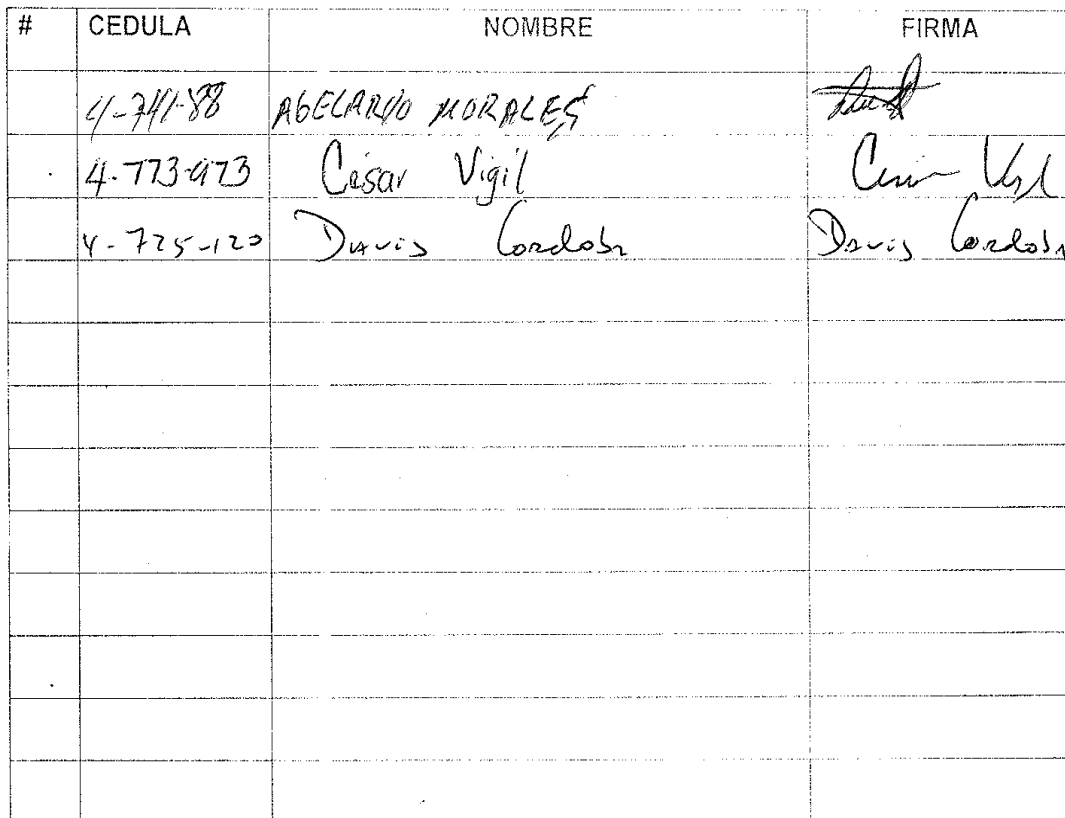 # CEDULA NOMBRE FIRMA
4-741-88 ABELARDO MORALES
4-773-973 César Vigil
4-725-120 Davis Cordoba Davis Cordoba